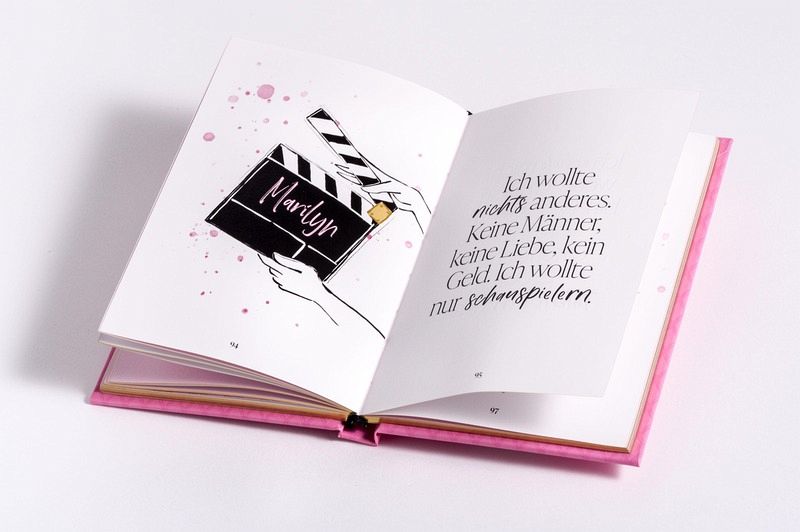 Marilyn
94
Ich wollte
nichts anderes.
Keine Männer,
keine Liebe, kein
Geld. Ich wollte
nur schauspielern.
95
97